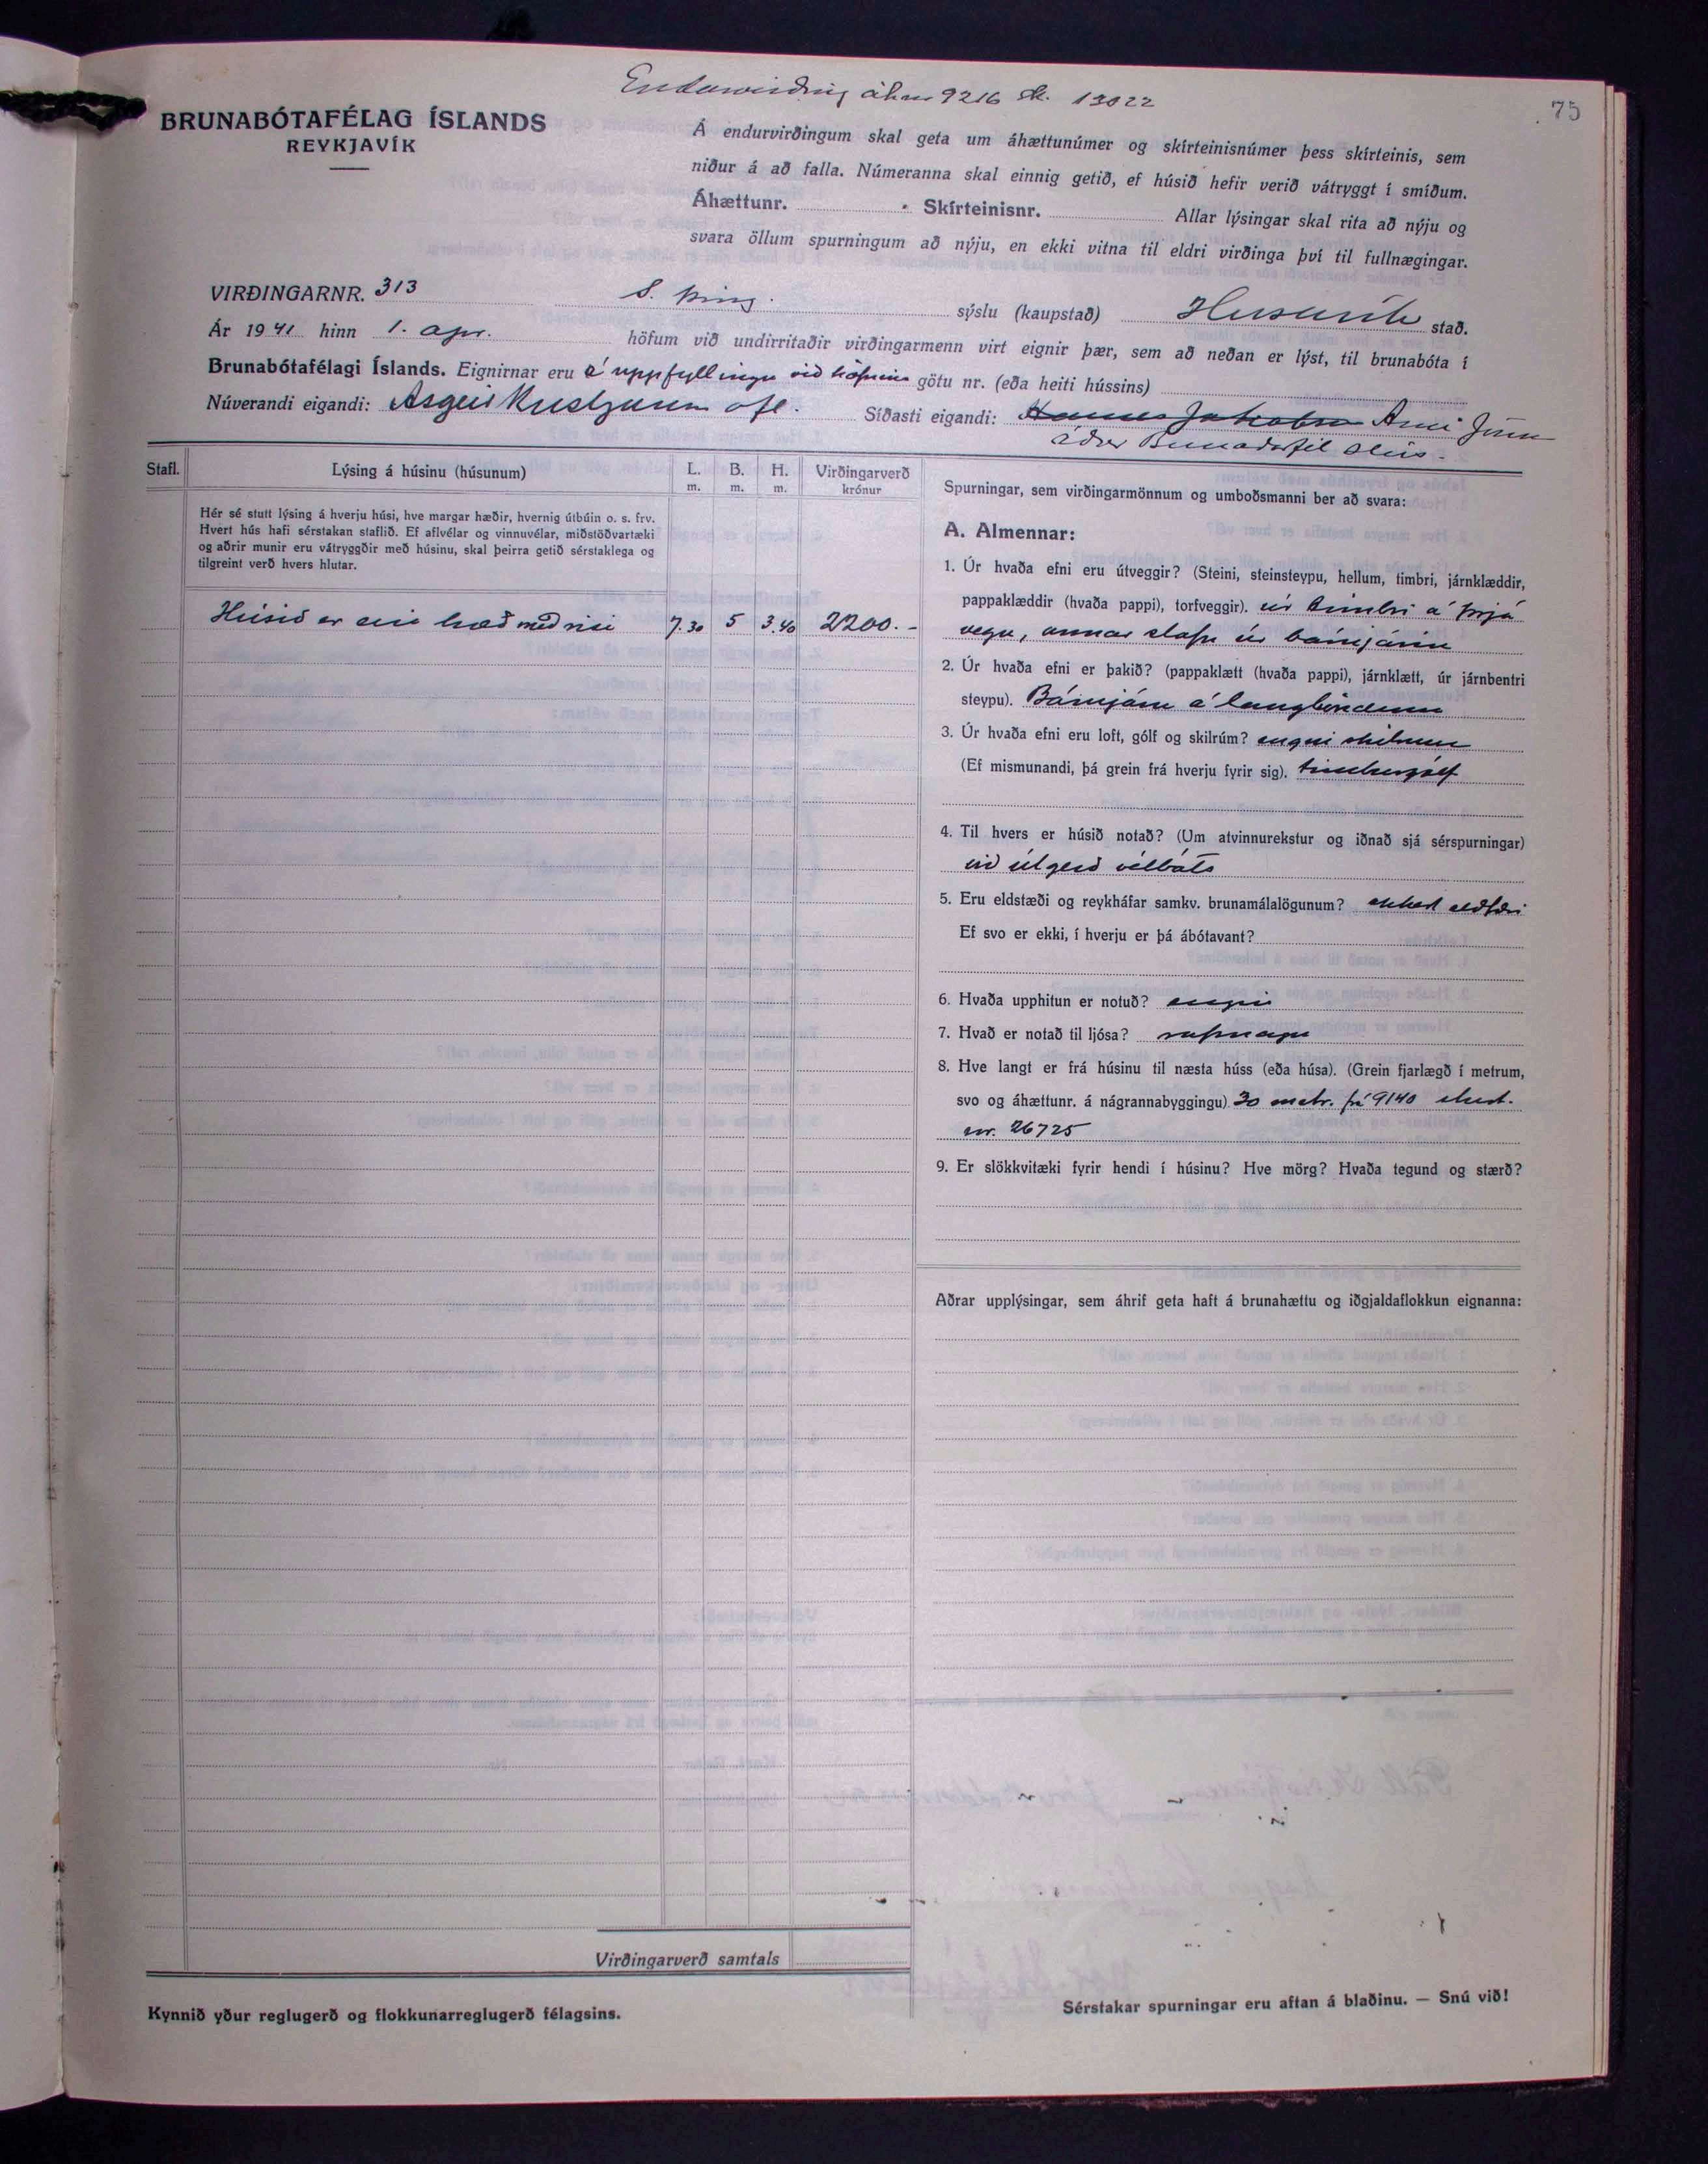 Endurvirðing áhnr 9216 sk. 13022
75
BRUNABÓTAFÉLAG ÍSLANDS
REYKJAVÍK
Á endurvirðingum skal geta um áhættunúmer og skírteinisnúmer þess skírteinis, sem
niður á að falla. Númeranna skal einnig getið, ef húsið hefir verið vátryggt í smíðum.
Áhættunr. Skírteinisnr. Allar lýsingar skal rita að nýju og
svara öllum spurningum að nýju, en ekki vitna til eldri virðinga því til fullnægingar.
VIRÐINGARNR. 313 S. Þing. sýslu (kaupstað) Húsavík stað.
Ár 1941 hinn 1. apr. höfum við undirritaðir virðingarmenn virt eignir þær, sem að neðan er lýst, til brunabóta í
Brunabótafélagi Íslands. Eignirnar eru á uppfyllingu við höfnina götu nr. (eða heiti hússins)
Núverandi eigandi: Ásgeir Kristjánsson ofl. Síðasti eigandi: Hannes Jakobsson Árni Jónss
áður
Stafl. Lýsing á húsinu (húsunum) L. m. B. m. H. m. Virðingarverð krónur
Hér sé stutt lýsing á hverju húsi, hve margar hæðir, hvernig útbúin o. s. frv.
Hvert hús hafi sérstakan staflið. Ef aflvélar og vinnuvélar, miðstöðvartæki
og aðrir munir eru vátryggðir með húsinu, skal þeirra getið sérstaklega og
tilgreint verð hvers hlutar.
Húsið er ein hæð með risi 7.30 5 3.40 2200.-
Virðingarverð samtals
Kynnið yður reglugerð og flokkunarreglugerð félagsins.
Spurningar, sem virðingarmönnum og umboðsmanni ber að svara:
A. Almennar:
1. Úr hvaða efni eru útveggir? (Steini, steinsteypu, hellum, timbri, járnklæddir,
pappaklæddir (hvaða pappi), torfveggir). úr timbri á þrjá
vegu, annar stafn úr bárujárni
2. Úr hvaða efni er þakið? (pappaklætt (hvaða pappi), járnklætt, úr járnbentri
steypu). Bárujárn á langböndum
3. Úr hvaða efni eru loft, gólf og skilrúm? engin skilrúm
(Ef mismunandi, þá grein frá hverju fyrir sig). timburgólf
4. Til hvers er húsið notað? (Um atvinnurekstur og iðnað sjá sérspurningar)
við útgerð vélbáts
5. Eru eldstæði og reykháfar samkv. brunamálalögunum? ekkert eldfæri
Ef svo er ekki, í hverju er þá ábótavant?
6. Hvaða upphitun er notuð? engin
7. Hvað er notað til ljósa? rafmagn
8. Hve langt er frá húsinu til næsta húss (eða húsa). (Grein fjarlægð í metrum,
svo og áhættunr. á nágrannabyggingu). 30 metr. frá 9140 skírt.
nr. 26725
9. Er slökkvitæki fyrir hendi í húsinu? Hve mörg? Hvaða tegund og stærð?
Aðrar upplýsingar, sem áhrif geta haft á brunahættu og iðgjaldaflokkun eignanna:
Sérstakar spurningar eru aftan á blaðinu. — Snú við!